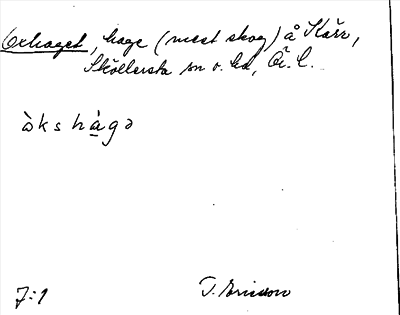 Oxhaget, hage (mest skog) å Kärr,
Sköllersta sn o. hd, Ör. l.
ò̀k s h à̱ g ə
7:1
T. Ericsson